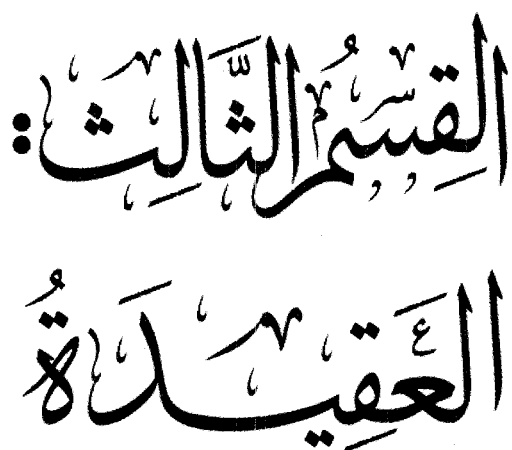 القِسْمُ الثَّالِث:
العَقِيدَةُ